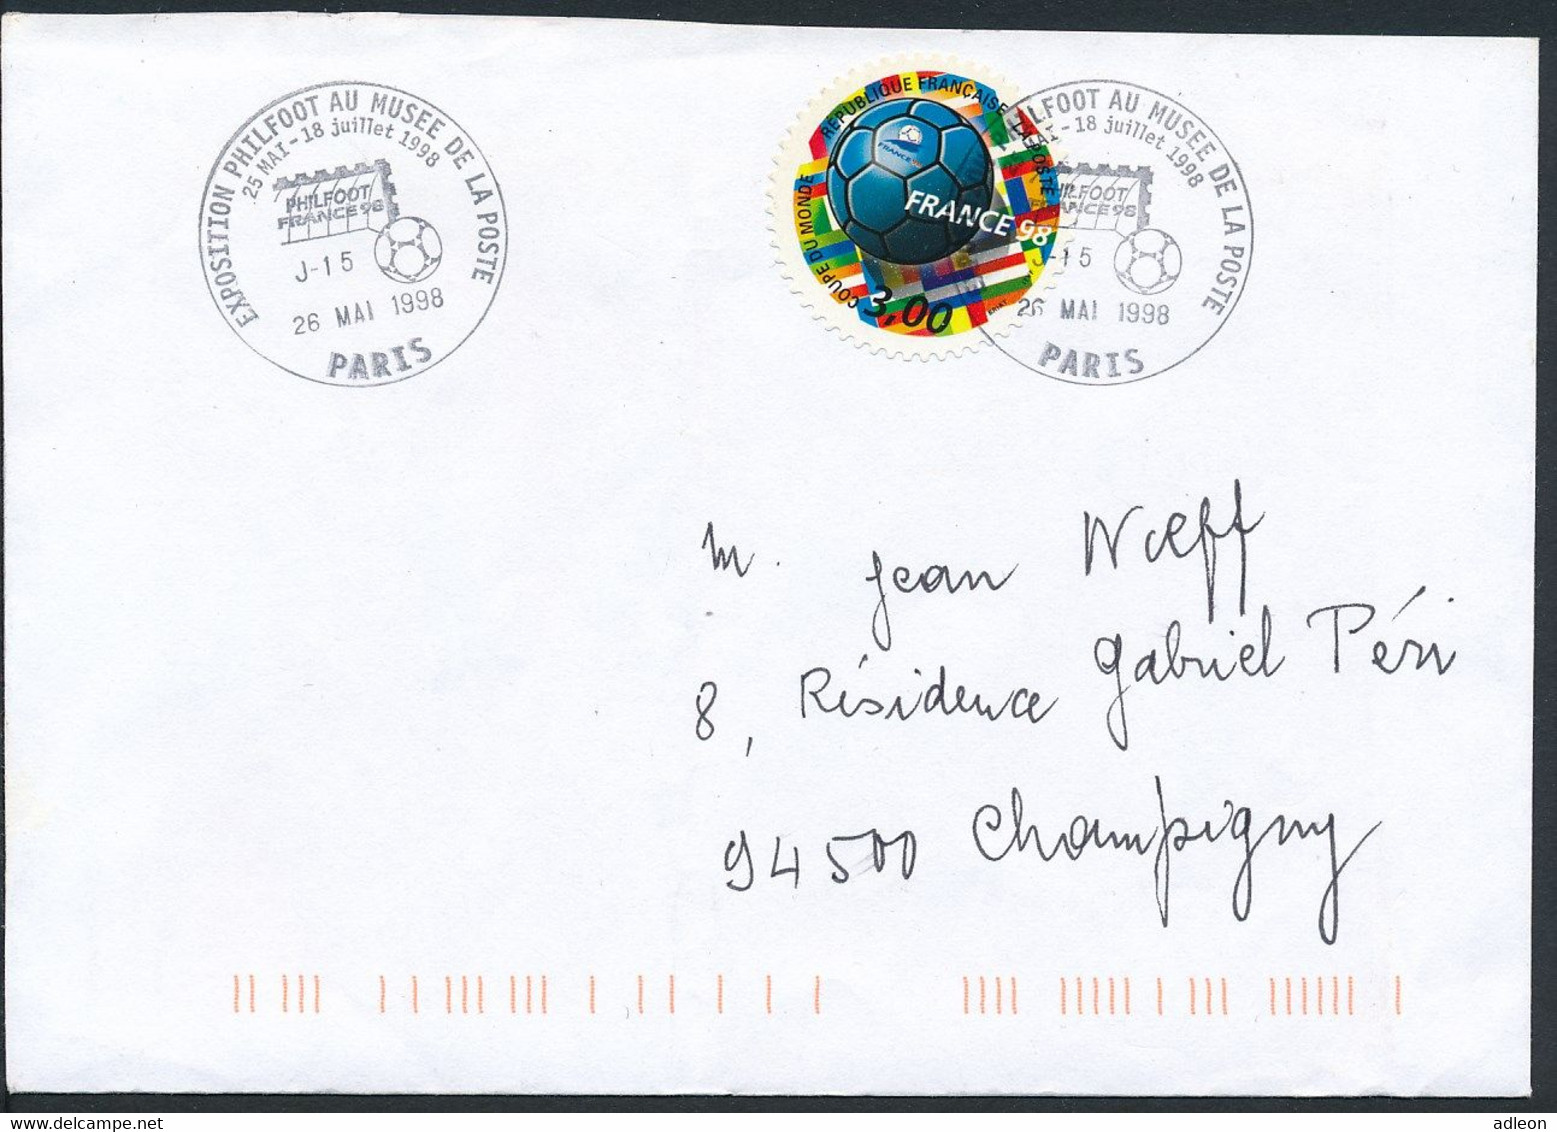 EXPOSITION PHILFOOT AU MUSEE DE LA POSTE
25 MAI - 18 juillet 1998
PHILFOOT
FRANCE 98
J-15
26 MAI 1998
PARIS
RÉPUBLIQUE FRANÇAISE LA POSTE
COUPE DU MONDE
FRANCE 98
FRANCE 98
3,00
HILFOOT AU MUSEE DE LA POSTE
MAI - 18 juillet 1998
HILFOOT
FRANCE 98
J-15
26 MAI 1998
PARIS
M. Jean Woeff
8, Résidence Gabriel Péri
94500 Champigny
delcampe.net
adleon